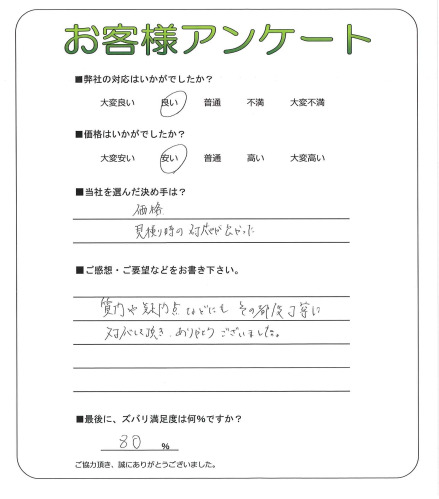 お客様アンケート
■弊社の対応はいかがでしたか？
大変良い 良い 普通 不満 大変不満
■価格はいかがでしたか？
大変安い 安い 普通 高い 大変高い
■当社を選んだ決め手は？
価格
見積り時の対応がよかった
■ご感想・ご要望などをお書き下さい。
質問や疑問点などにもその都度丁寧に
対応して頂き、ありがとうございました。
■最後に、ズバリ満足度は何%ですか？
80 %
ご協力頂き、誠にありがとうございました。